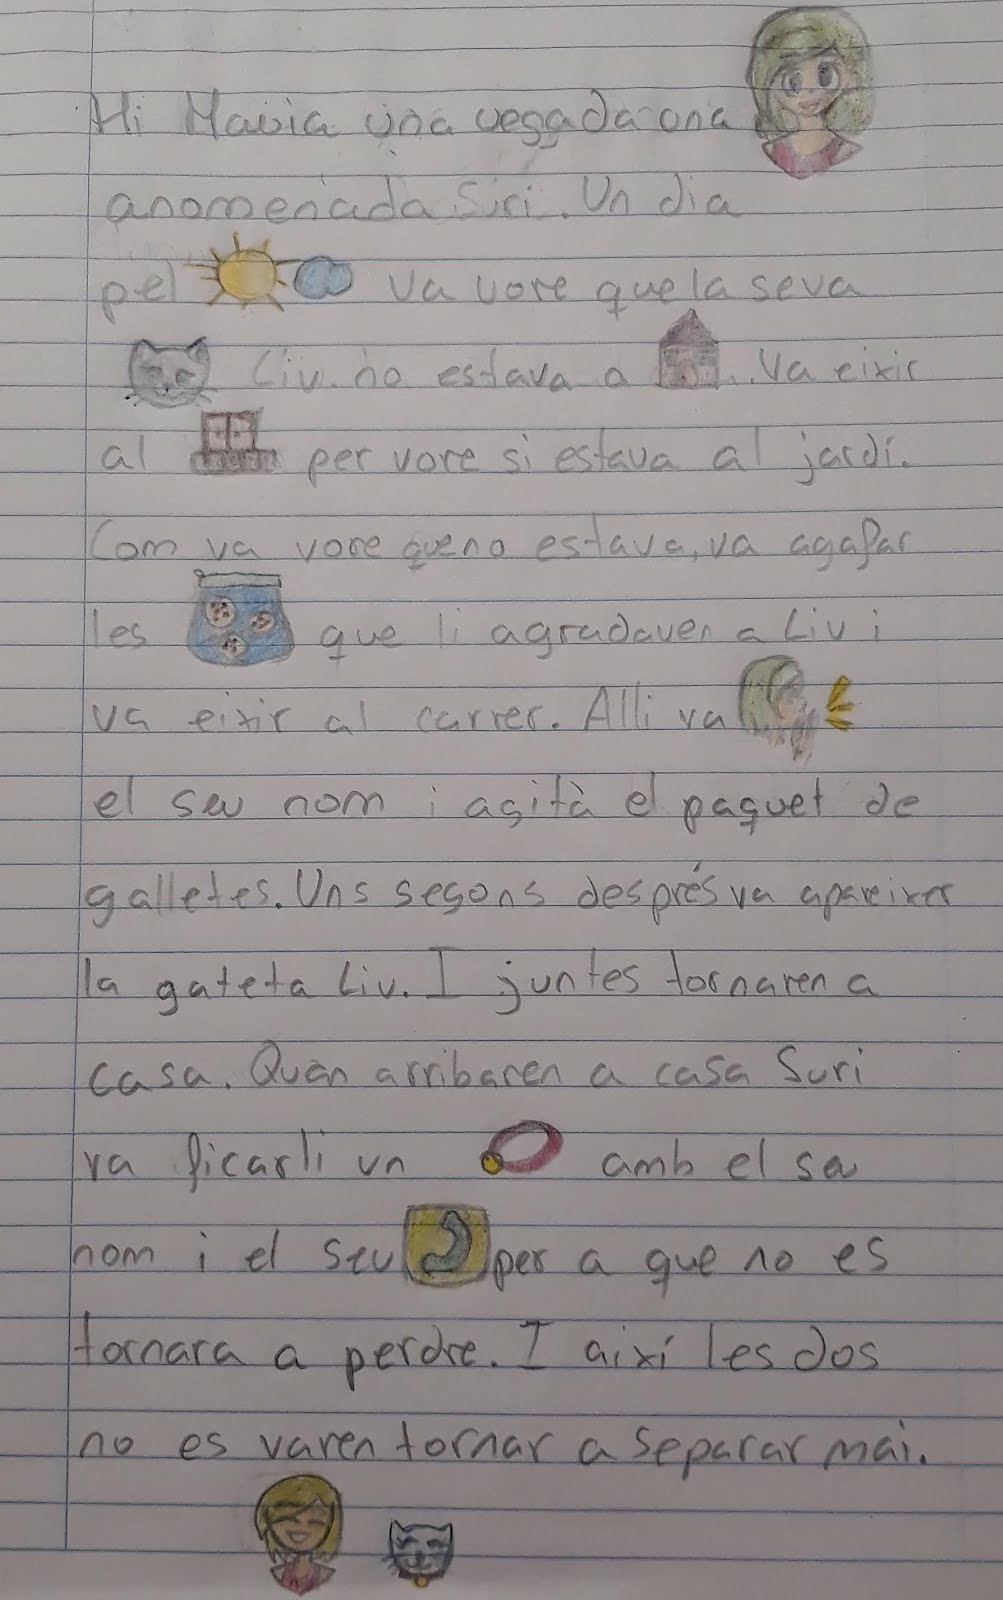 Hi Havia una vegada una
anomenada Suri. Un dia
pel va vore que la seva
Liv no estava a . Va eixir
al per vore si estava al jardí.
Com va vore que no estava, va agafar
les que li agradaven a Liv i
va eixir al carrer. Alli va
el seu nom i agità el paquet de
galletes. Uns segons després va apareixer
la gateta Liv. I juntes tornaren a
casa. Quan arribaren a casa Suri
va ficarli un amb el seu
nom i el seu per a que no es
tornara a perdre. I així les dos
no es varen tornar a separar mai.